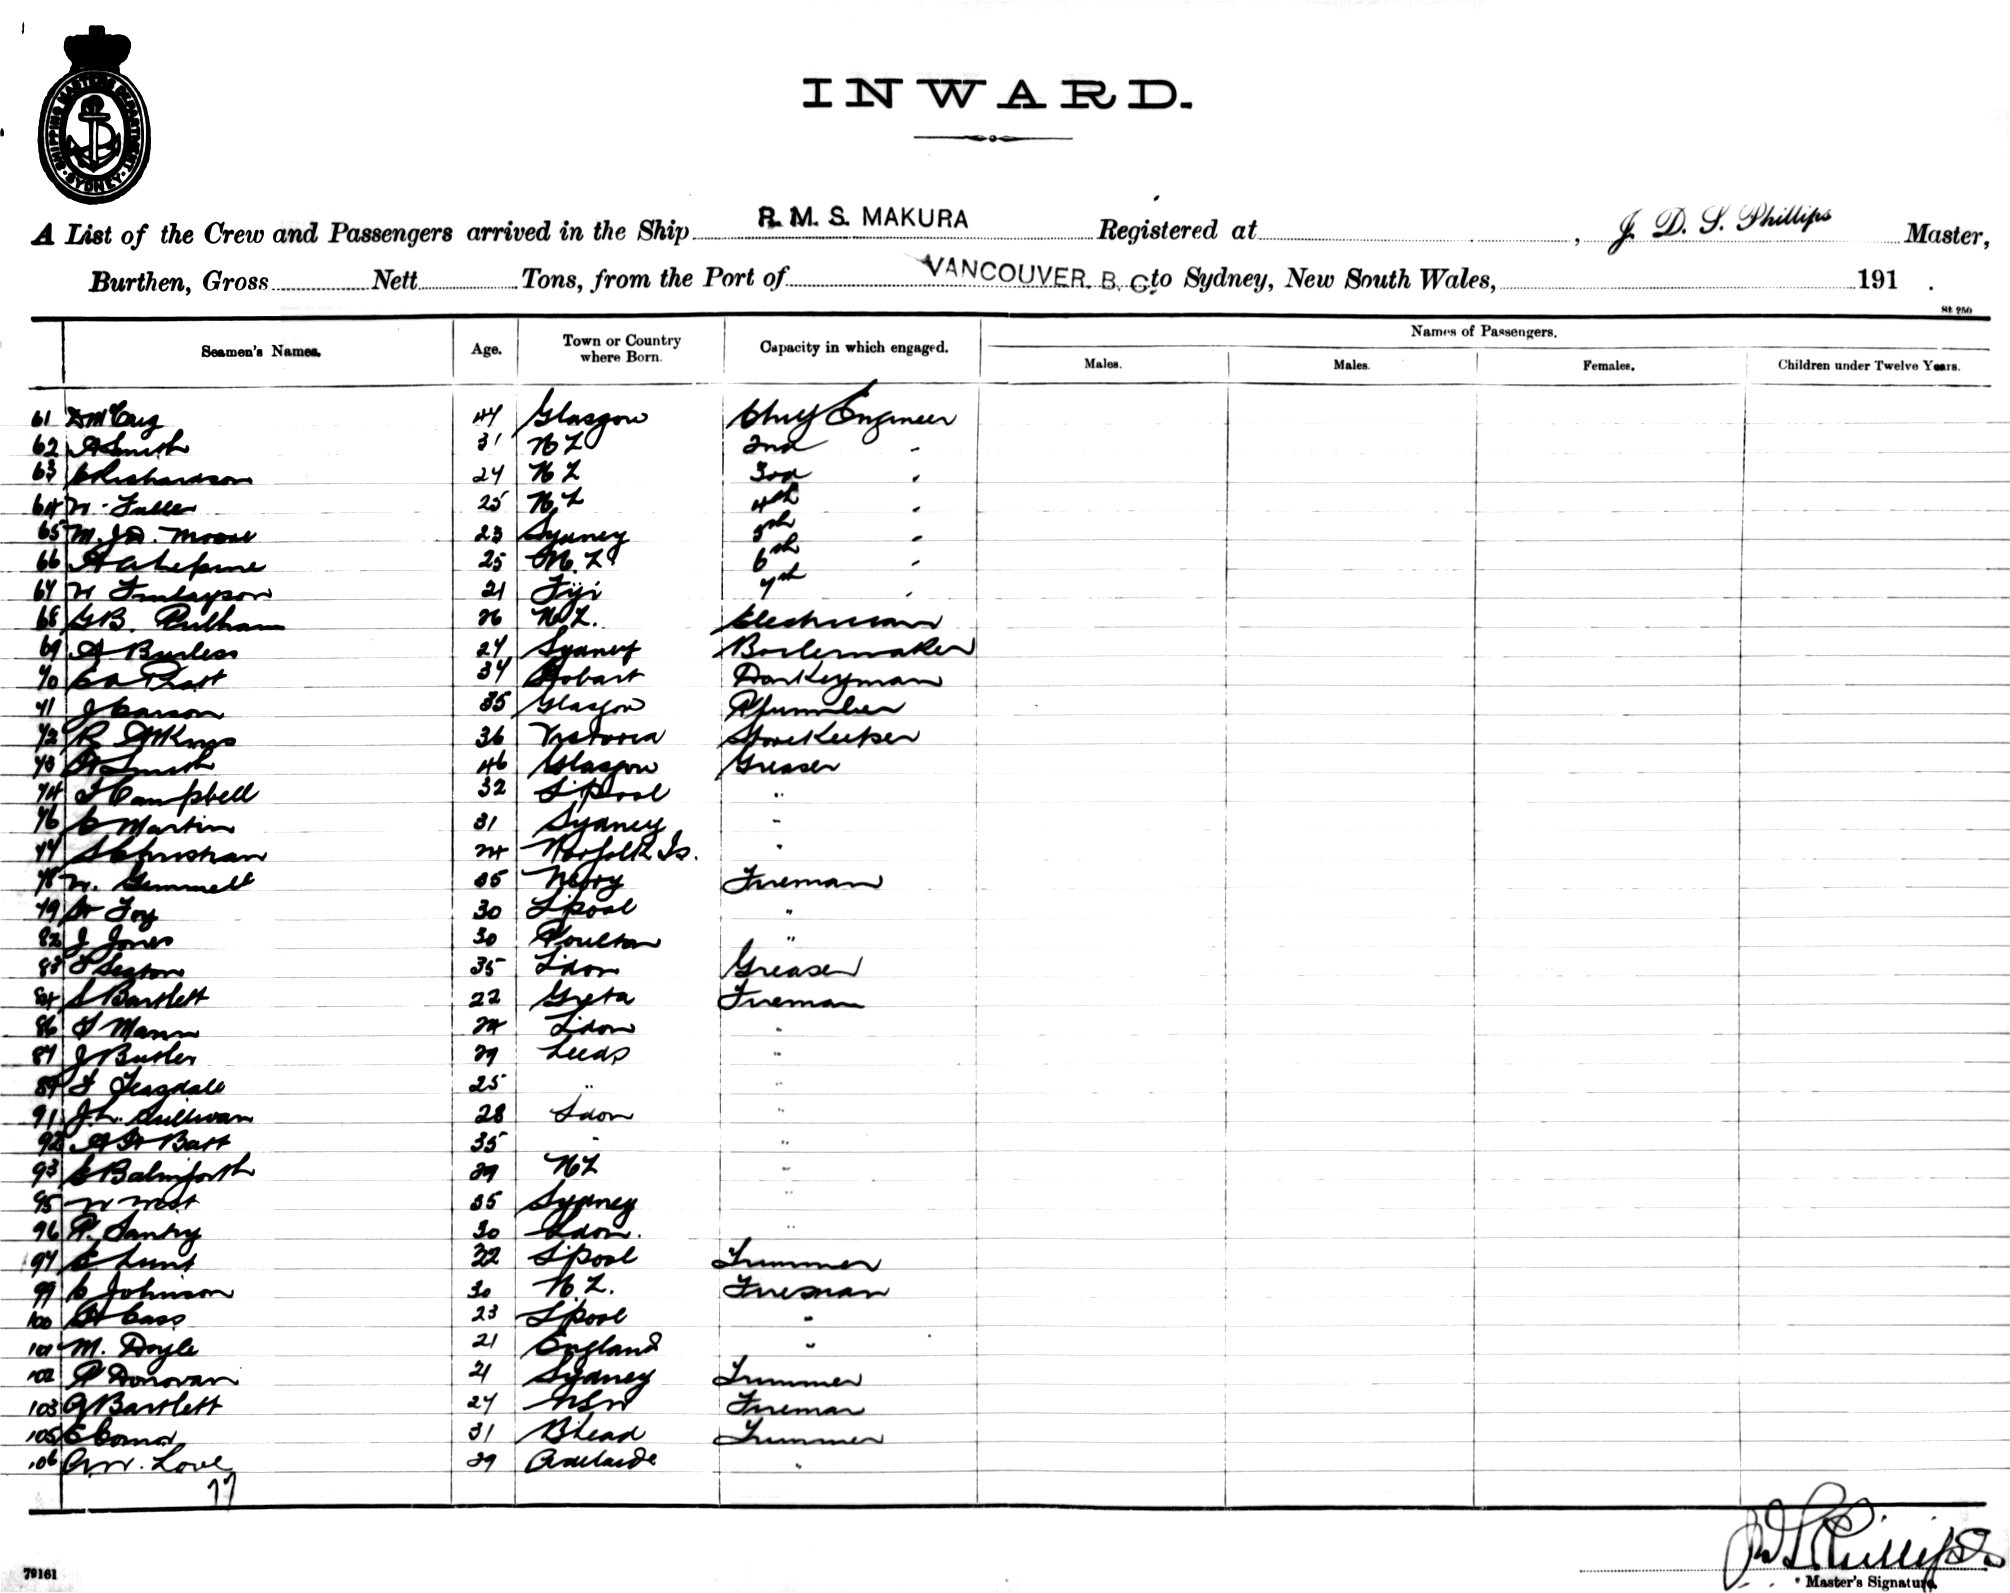 SHIPPING MASTERS DEPARTMENT · SYDNEY ·
INWARD.
A List of the Crew and Passengers arrived in the Ship R. M. S. MAKURA Registered at , J. D. S. Phillips Master,
Burthen, Gross Nett Tons, from the Port of VANCOUVER. B. C. to Sydney, New South Wales, 191 .
St. 250
Seamen's Names. Age. Town or Country where Born. Capacity in which engaged. Names of Passengers.
Males. Males. Females. Children under Twelve Years.
61 44 Glasgow Chief Engineer
62 A Smith 31 NZ 2nd "
63 C Richardson 24 NZ 3rd "
64 W. Fuller 25 NZ 4th "
65 M. J. D. Moore 23 Sydney 5th "
66 25 N.Z 6th "
67 W Finlayson 21 Fiji 7th "
68 G B. Pulham 26 NZ. Electrician
69 A Burless 24 Sydney Boilermaker
70 C A Pratt 34 Hobart Donkeyman
71 J Carson 35 Glasgow Plummber
72 R 36 Victoria StoreKeeper
73 A Smith 46 Glasgow Greaser
74 J Campbell 32 L'Pool "
76 C Martin 31 Sydney "
77 S Christian 24 Norfolk Is. "
78 W. Gemmell 35 Fireman
79 W Foy 30 L'pool "
82 J Jones 30 Poulton "
83 F Seaton 35 L'don Greaser
84 S Bartlett 22 Greta Fireman
86 F Mann 24 L'don "
87 J Butler 29 Leeds "
89 F Teasdale 25 " "
91 J. L. Sullivan 28 L'don "
92 A W Batt 35 " "
93 C Balmforth 29 NZ "
95 W West 35 Sydney "
96 P. Santry 30 L'don. "
97 E Lunt 32 L'Pool Trimmer
99 C Johnson 30 N.Z. Fireman
100 W Cass 23 L'pool "
101 M. Doyle 21 England "
102 P Donovan 21 Sydney Trimmer
103 A Bartlett 27 NSW Fireman
105 E Connor 31 B'head Trimmer
106 A. W. Love 29 Adelaide "
77
J D S Phillips
79161
Master's Signature.